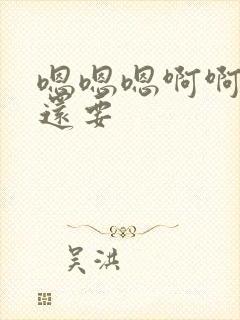 嗯嗯嗯啊啊
還要
吴洪